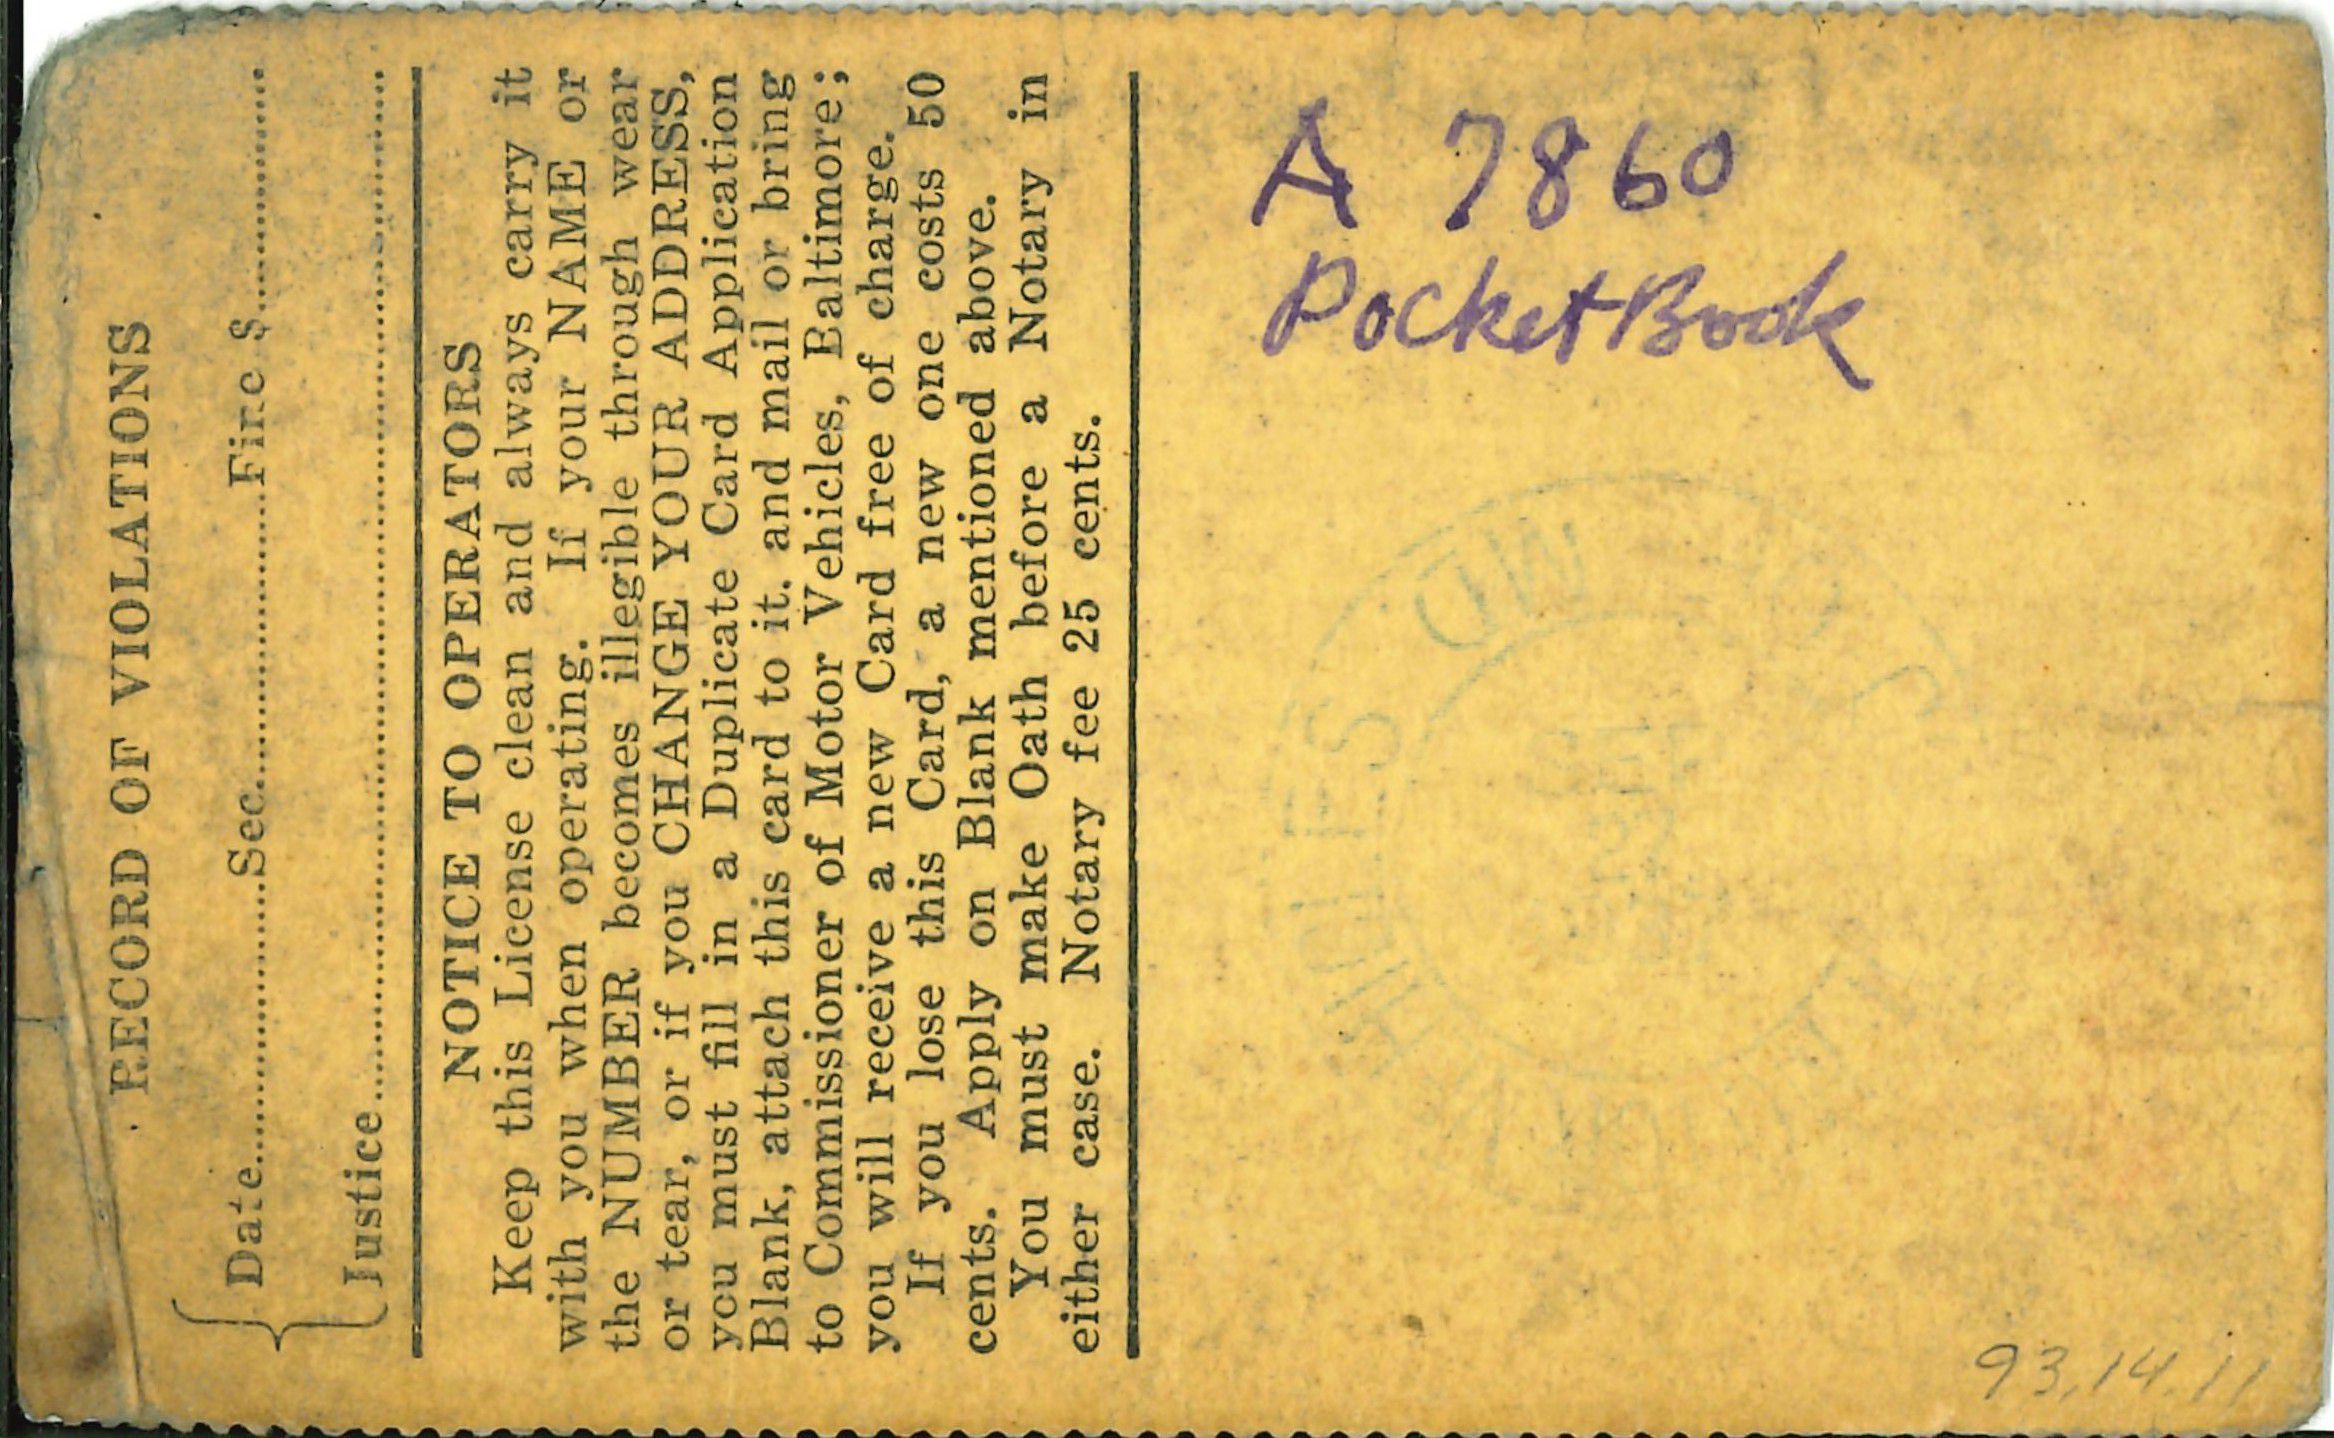 RECORD OF VIOLATIONS
Date..............................Sec..............................Fine $....................
Justice........................................................................................
NOTICE TO OPERATORS
Keep this License clean and always carry it
with you when operating. If your NAME or
the NUMBER becomes illegible through wear
or tear, or if you CHANGE YOUR ADDRESS,
you must fill in a Duplicate Card Application
Blank, attach this card to it. and mail or bring
to Commissioner of Motor Vehicles, Baltimore;
you will receive a new Card free of charge.
If you lose this Card, a new one costs 50
cents. Apply on Blank mentioned above.
You must make Oath before a Notary in
either case. Notary fee 25 cents.
A 7860
PocketBook
MD
93.14.11